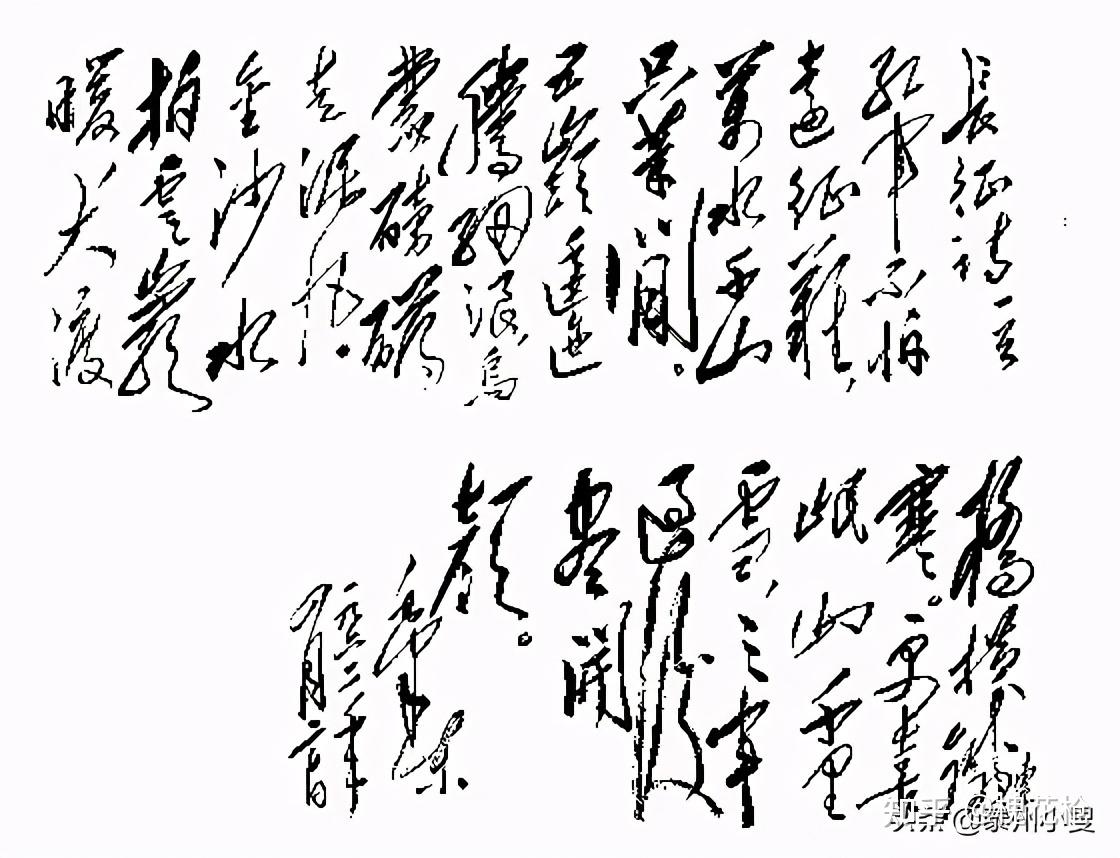 長征詩一首
紅軍不怕
遠征難,
萬水千山
只等閒。
五嶺逶迤
騰細浪烏
蒙磅礴
走泥丸。
金沙水
拍雲巖
暖大渡
橋橫鐵索
寒。更喜
岷山千里
雪,三軍
過後
盡開
顏。
知乎